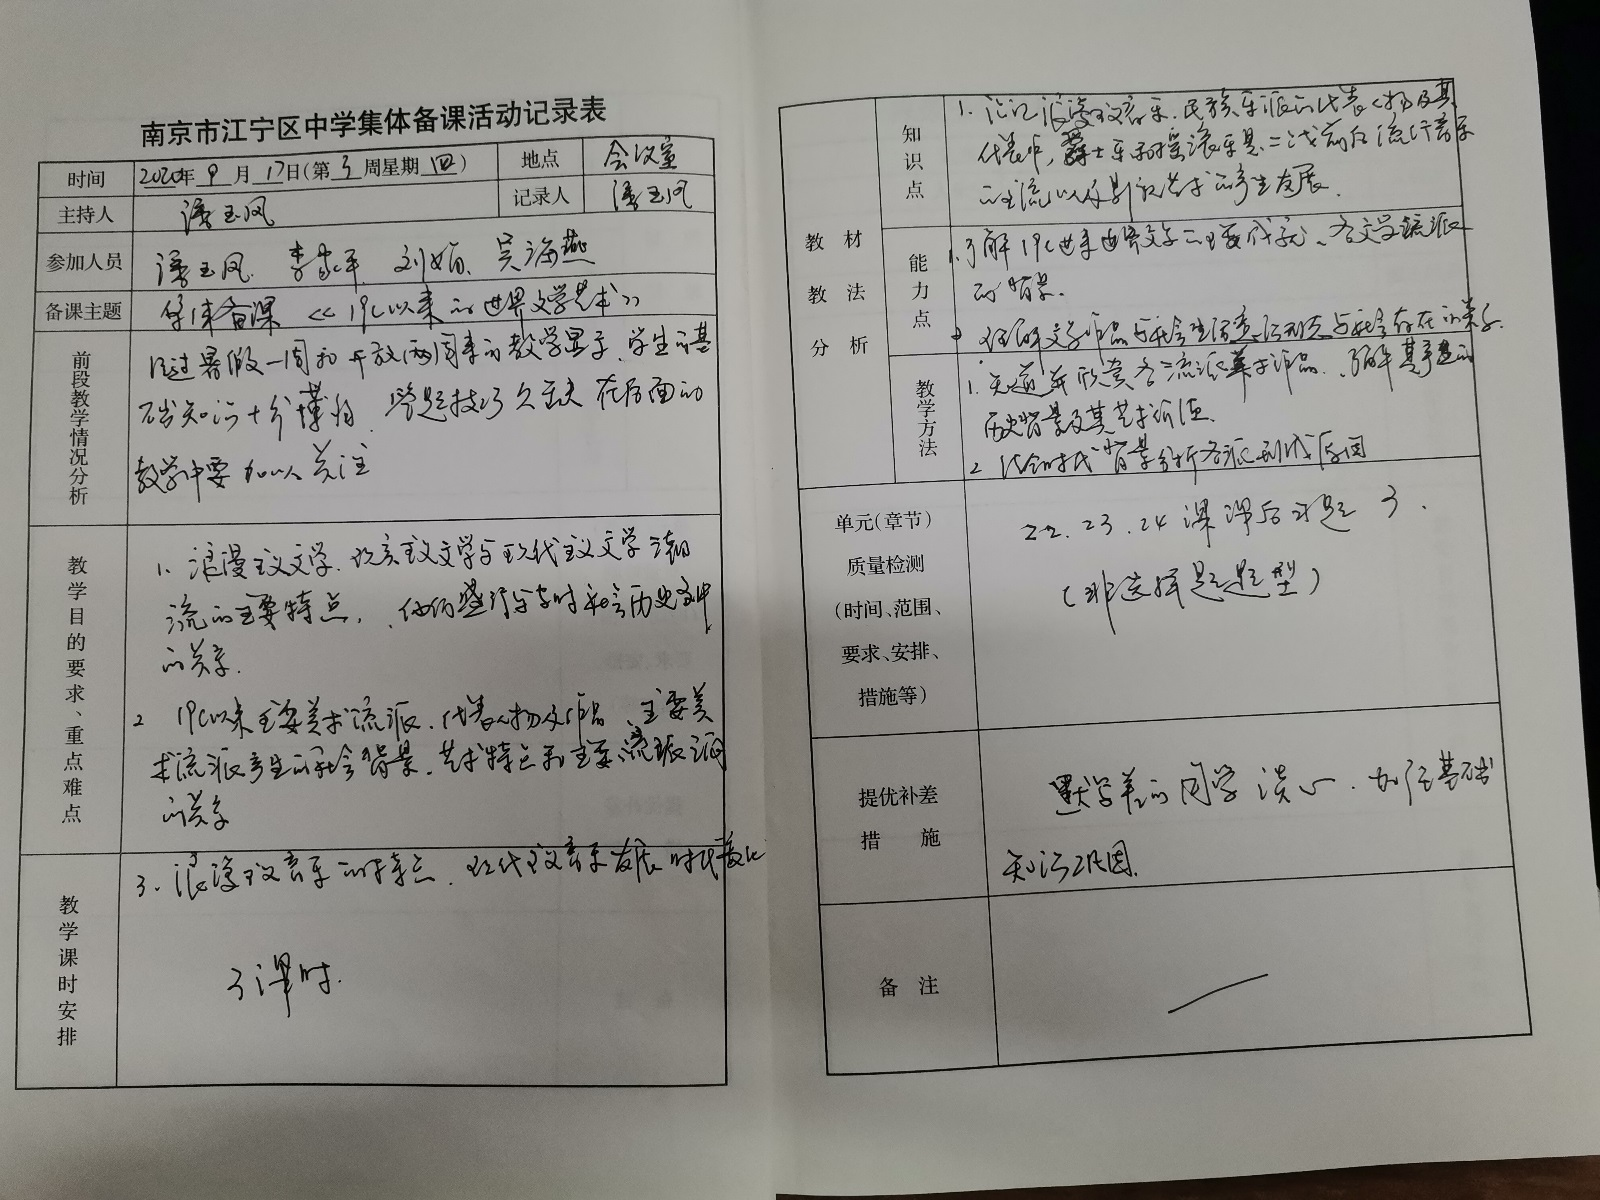 南京市江宁区中学集体备课活动记录表
时间 2020年9月17日(第3周星期四) 地点 会议室
主持人 潘玉凤 记录人 潘玉凤
参加人员 潘玉凤、李家平、刘娟、吴海燕
备课主题 集体备课《19C以来的世界文学艺术》
前段教学情况分析
通过暑假一周和开放两周来的教学显示,学生的基
础知识十分薄弱,答题技巧欠缺 在后面的
教学中要加以关注
教学目的要求、重点难点
1. 浪漫主义文学、现实主义文学与现代主义文学
流的主要特点、他们盛行与当时社会历史
的关系.
2 19C以来主要美术流派、代表人物及作品、主要美
术流派产生的社会背景、艺术特点和主要流派
的关系
3. 浪漫主义音乐的特点、现代主义音乐发展时代
教学课时安排
3课时.
教材教法分析
知识点
1. 识记浪漫主义音乐、民族乐派的代表人物及其
代表作,爵士乐和摇滚乐是二战前后流行音乐
的主流以及影视艺术的产生发展.
能力点
1.了解19C以来世界文学的主要成就、各文学流派
的背景.
2 理解文学作品与社会生活 与社会存在的关系.
教学方法
1. 知道并欣赏各流派美术作品、了解其产生的
历史背景及其艺术价值.
2 结合时代背景分析各派形成原因
单元(章节)
质量检测
(时间、范围、
要求、安排、
措施等)
22.23.24课课后习题 3.
(非选择题题型)
提优补差
措 施
学差的同学谈心.加强基础
知识巩固.
备 注